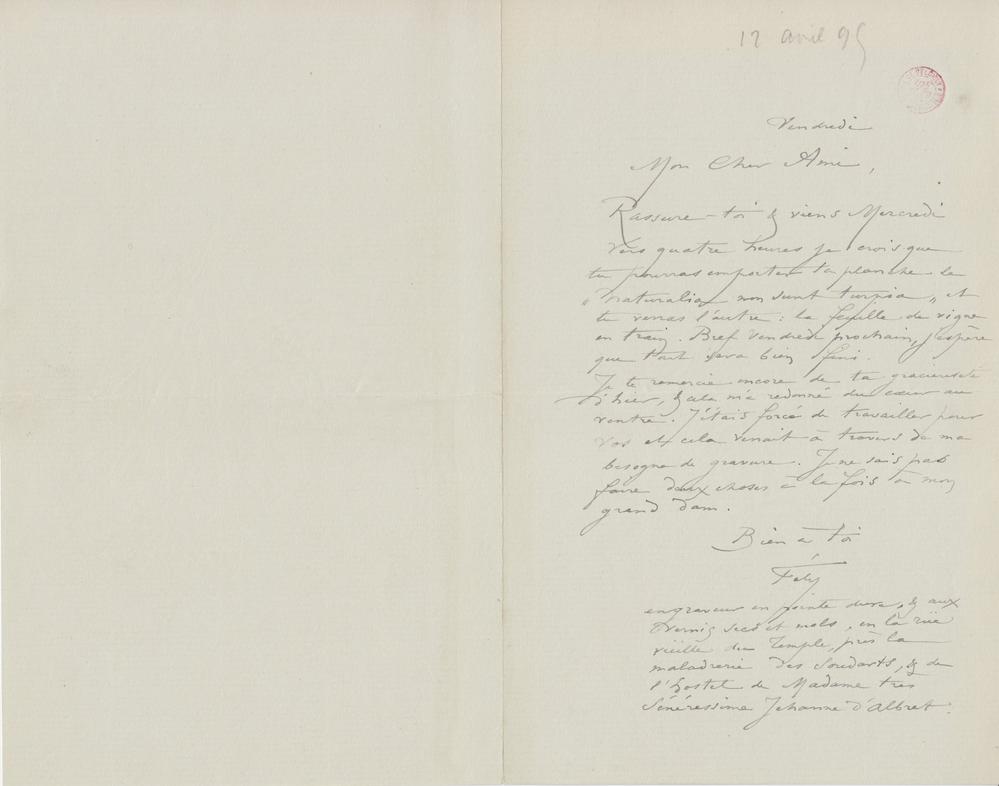 12 avril 95
Vendredi
Mon Cher Ami,
Rassure-toi & viens Mercredi
vers quatre heures je crois que
tu pourras emporter ta planche la
"naturalia non sunt turpia„ et
tu verras l'autre : la feuille de vigne
en train. Bref Vendredi prochain, j'espère
que tout sera bien fini.
Je te remercie encore de ta gracieuseté
d'hier, & cela m'a redonné du cœur au
ventre. J'étais forcé de travailler pour
Vos et cela venait à travers de ma
besogne de gravure. Je ne sais pas
faire deux choses à la fois à mon
grand dam.
Bien à toi
Fély
engraveur en pointe dure, & aux
Vernis secs et mols, en la rüe
vieille du Temple, près la
maladrerie des Soudarts, & de
l'hostel de Madame très
Sénéressime Jehanne d'Albret.